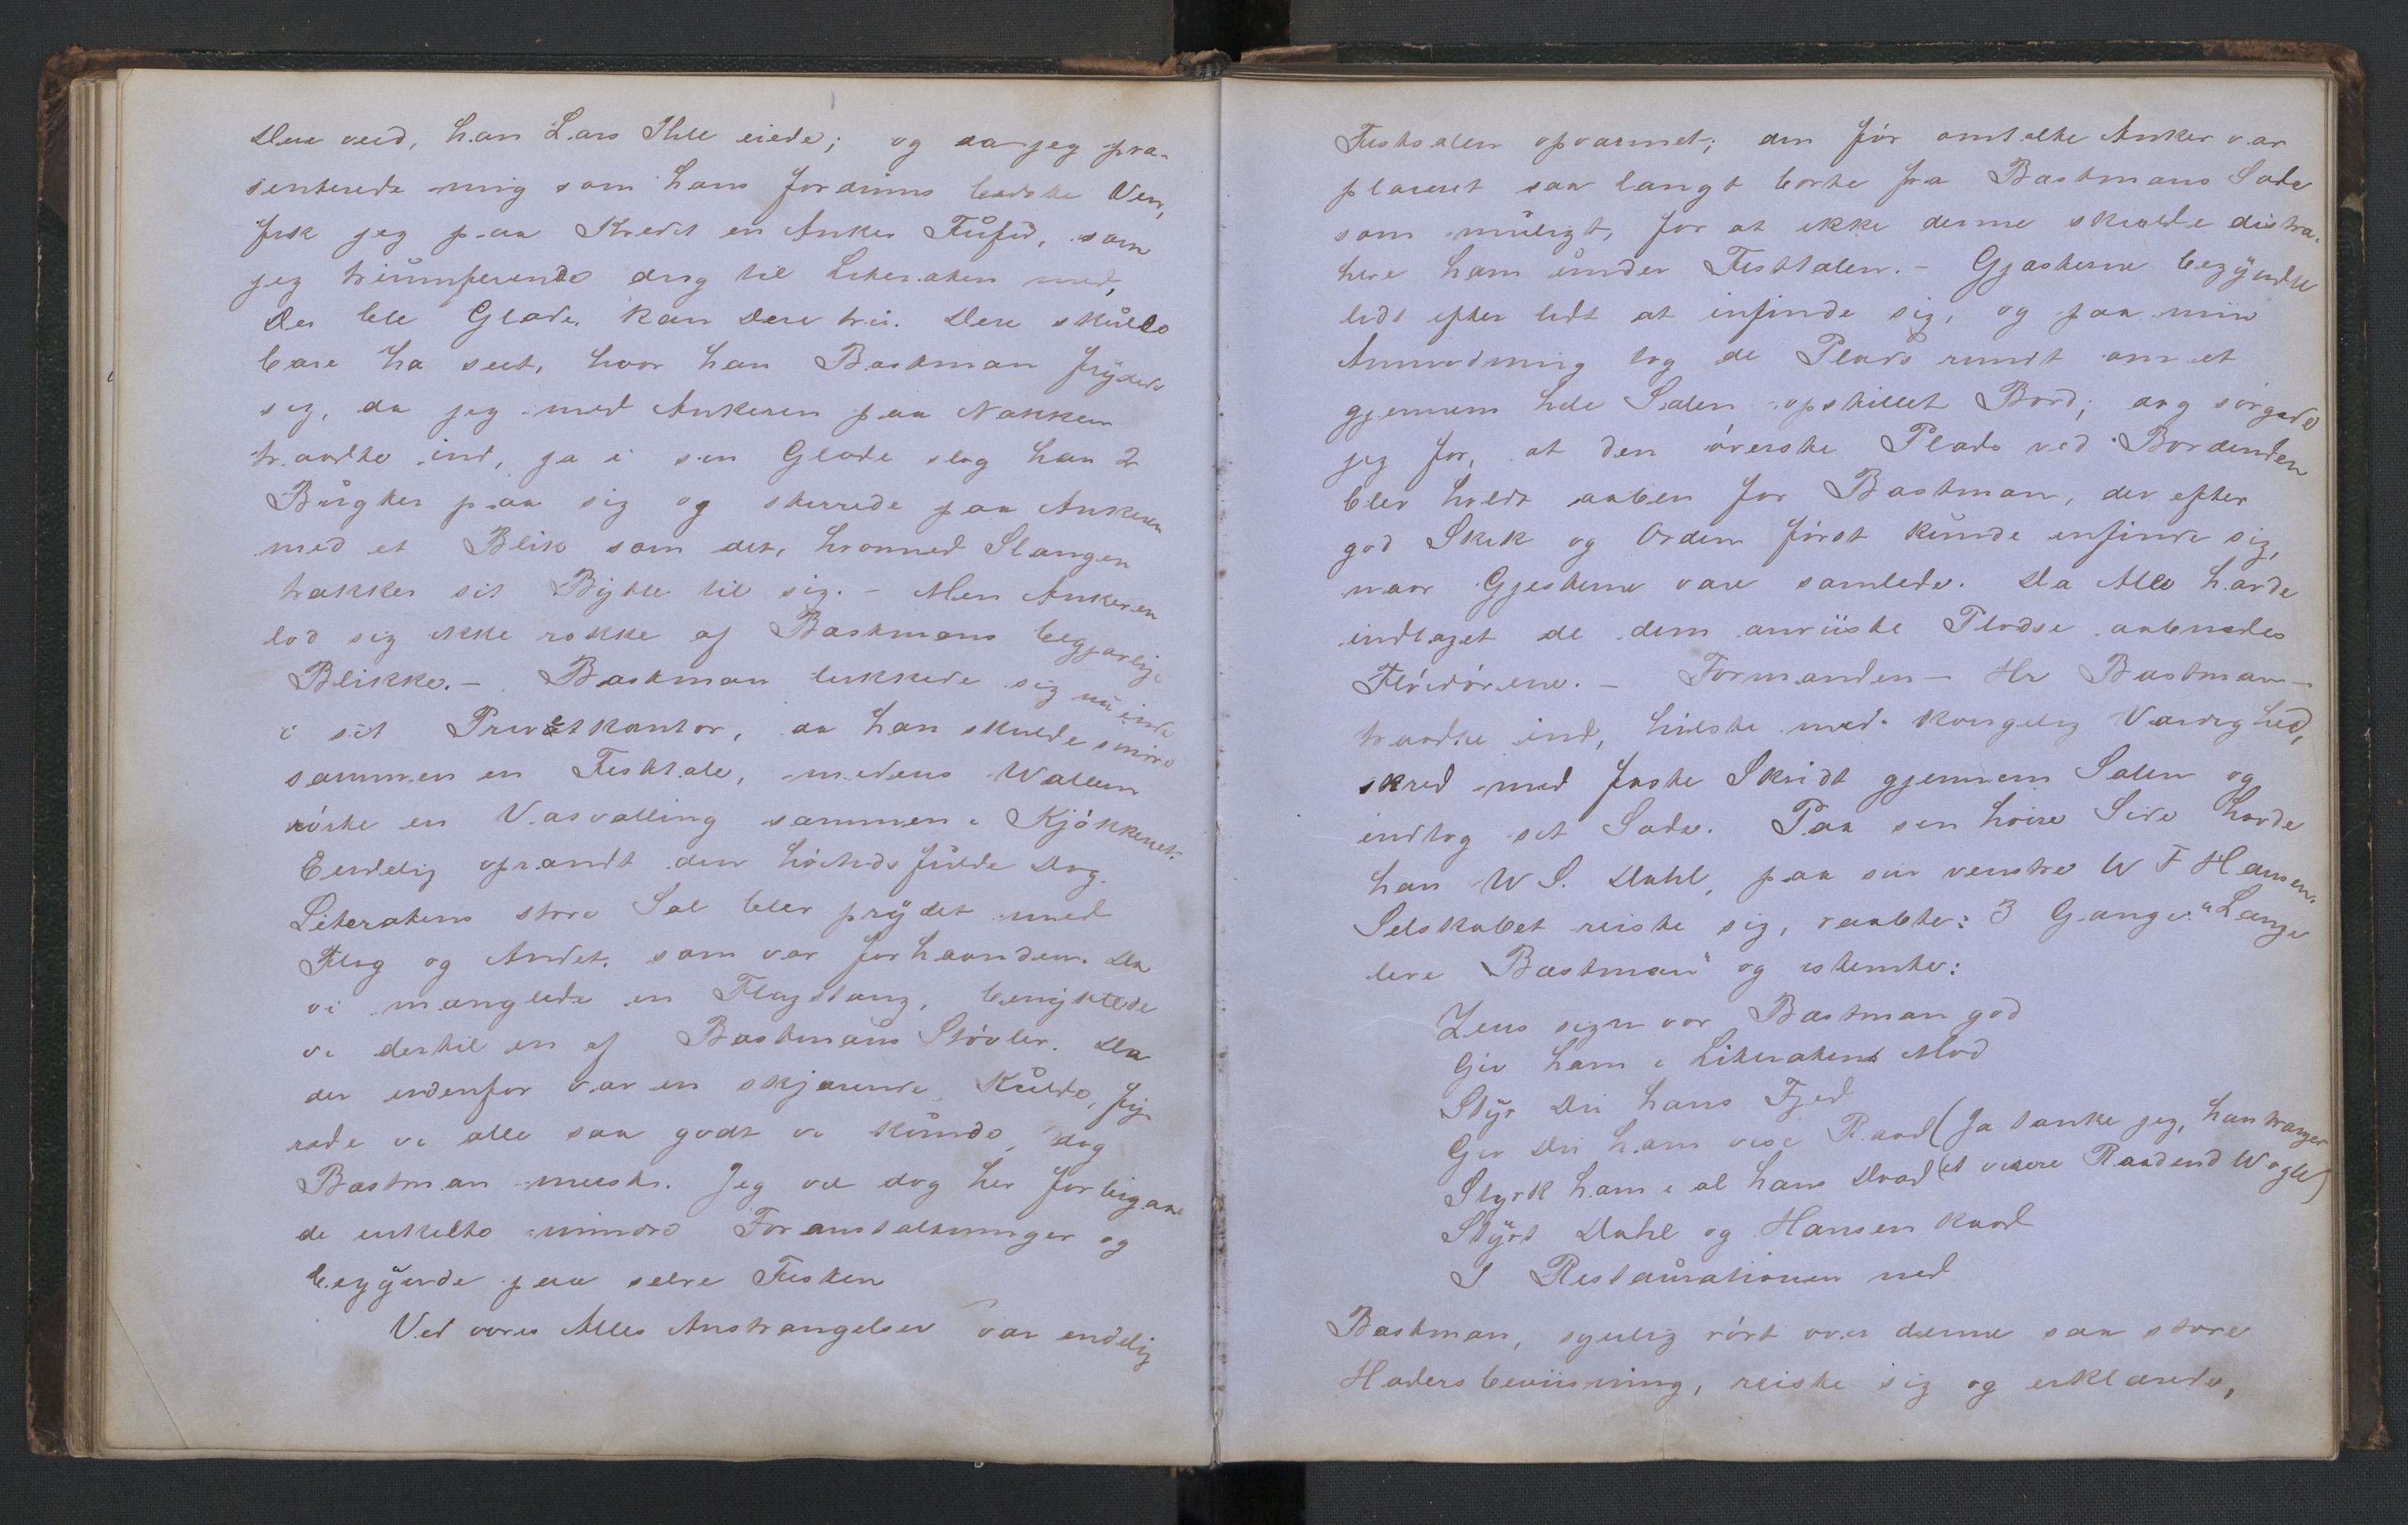 Dere veed, han Lars Ihle eiede; og da jeg præ-
senterede mig som hans fordums bedste Ven,
fik jeg paa Kredit en Anker Fusel, som
jeg triumferende drog til Literaten med,
Der ble Glæde, kan Dere tru. Dere skulde
bare ha seet, hvor han Bastman frydede
sig, da jeg med Ankeren paa Nakken
traadte ind, ja i sin Glæde slog han 2
paa sig og stirrede paa Ankeren
med et Blik som det, hvormed Slangen
trækker sit Bytte til sig. – Men Ankeren
lod sig ikke rokke af Bastmans begjærlige
Blikke. – Bastman lukkede sig nu inde
i sit Privatkontor, da han skulde smøre
sammen en Festtale, medens Wallem
rørte en Vasvælling sammen i Kjøkkenet.
Endelig oprandt den høitidsfulde Dag.
Literatens store Sal blev prydet med
Flag og Andet, som var forhaanden. Da
vi manglede en Flagstang, benyttede
vi dertil en af Bastmans Støvler. Da
der udenfor var en skjærende Kulde, fy-
rede vi alle saa godt vi kunde, dog
Bastman meest. Jeg vil dog her forbigaae
de enkelte mindre Foranstaltninger og
begynde paa selve Festen
Ved vores Alles Anstrængelser var endelig
Festsalen opvarmet; den før omtalte Anker var
placeret saa langt borte fra Bastmans Sæde
som muligt, for at ikke denne skulde distra-
here ham under Festtalen. – Gjæsterne begyndte
lidt efter lidt at infinde sig, og paa min
Anmodning tog de Plads rundt om et
gjennem hele Salen opstillet Bord; dog sørgede
jeg for, at den øverste Plads ved Bordenden
blev holdt aaben for Bastman, der efter
god Skik og Orden først kunde infinde sig,
naar Gjesterne vare samlede. Da Alle havde
indtaget de dem anviiste Pladse aabnedes
Fløidørene. – Formanden – Hr Bastman –
traadte ind, hilste med kongelig Værdighed,
skred med faste Skridt gjennem Salen og
indtog sit Sæde. Paa sin høire Side havde
han W S. Dahl, paa sin venstre W F Hansen.
Selskabet reiste sig, raabte: 3 Gange: "Længe
leve Bastman" og istemte:
Zeus signe vor Bastman god
Giv ham i Literaten Mod
Styr Du hans Fjed
Giv Du ham vise Raad (Ja tænke jeg, han trænger
Styrk ham i al hans Daad (et visere Raad end Wogle)
Styrt Dahl og Hansen kaad
I Restaurationen ned
Bastman, synlig rørt over denne saa store
Hædersbeviisning, reiste sig og erklærede,